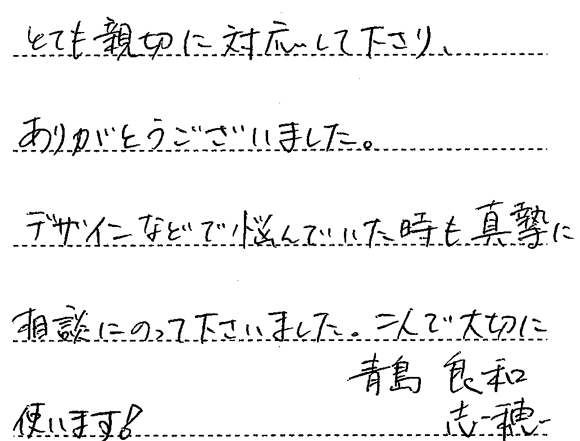 とても親切に対応して下さり、
ありがとうございました。
デザインなどで悩んでいた時も真摯に
相談にのって下さいました。二人で大切に
青島 良和
使います! 志穂